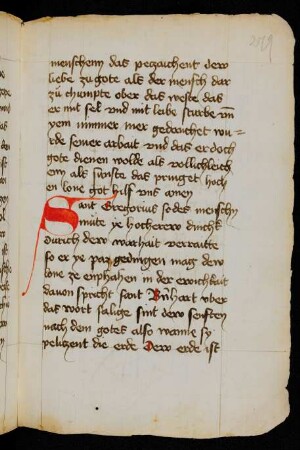 259
menschem das pezaichent dew
liebe zu gote als der mensch dar
zu chumpte ober das weste das
er mit sel vnd mit leibe sturbe vnd
yem nimmer mer gedanchet wu-
rde seiner arbait vnd das er doch
gote dienen wolde als vollichleich
em als sunste das pringet hoch
en lone got hilf vns amen
Sant Gregorius sedes menschn
mute ye hocherew dinck
durich dew warhait verratte
so er ye paz gedingen mag dew
lone ze enphahen in der ewichait
dauon spracht sant Rughart vber
das wort salige sint dew senften
nach dem gotes also wanne sy
pesitzent die erde Dew erde ist